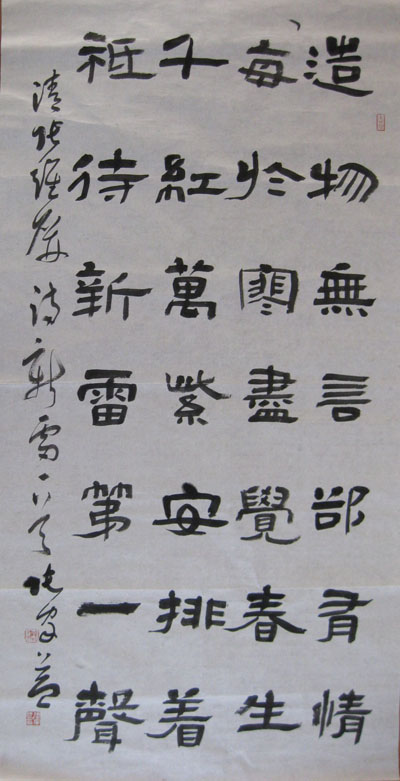 造物無言郤有情
每於寒盡覺春生
千紅萬紫安排着
祗待新雷第一聲
清張維屏詩新雷一首